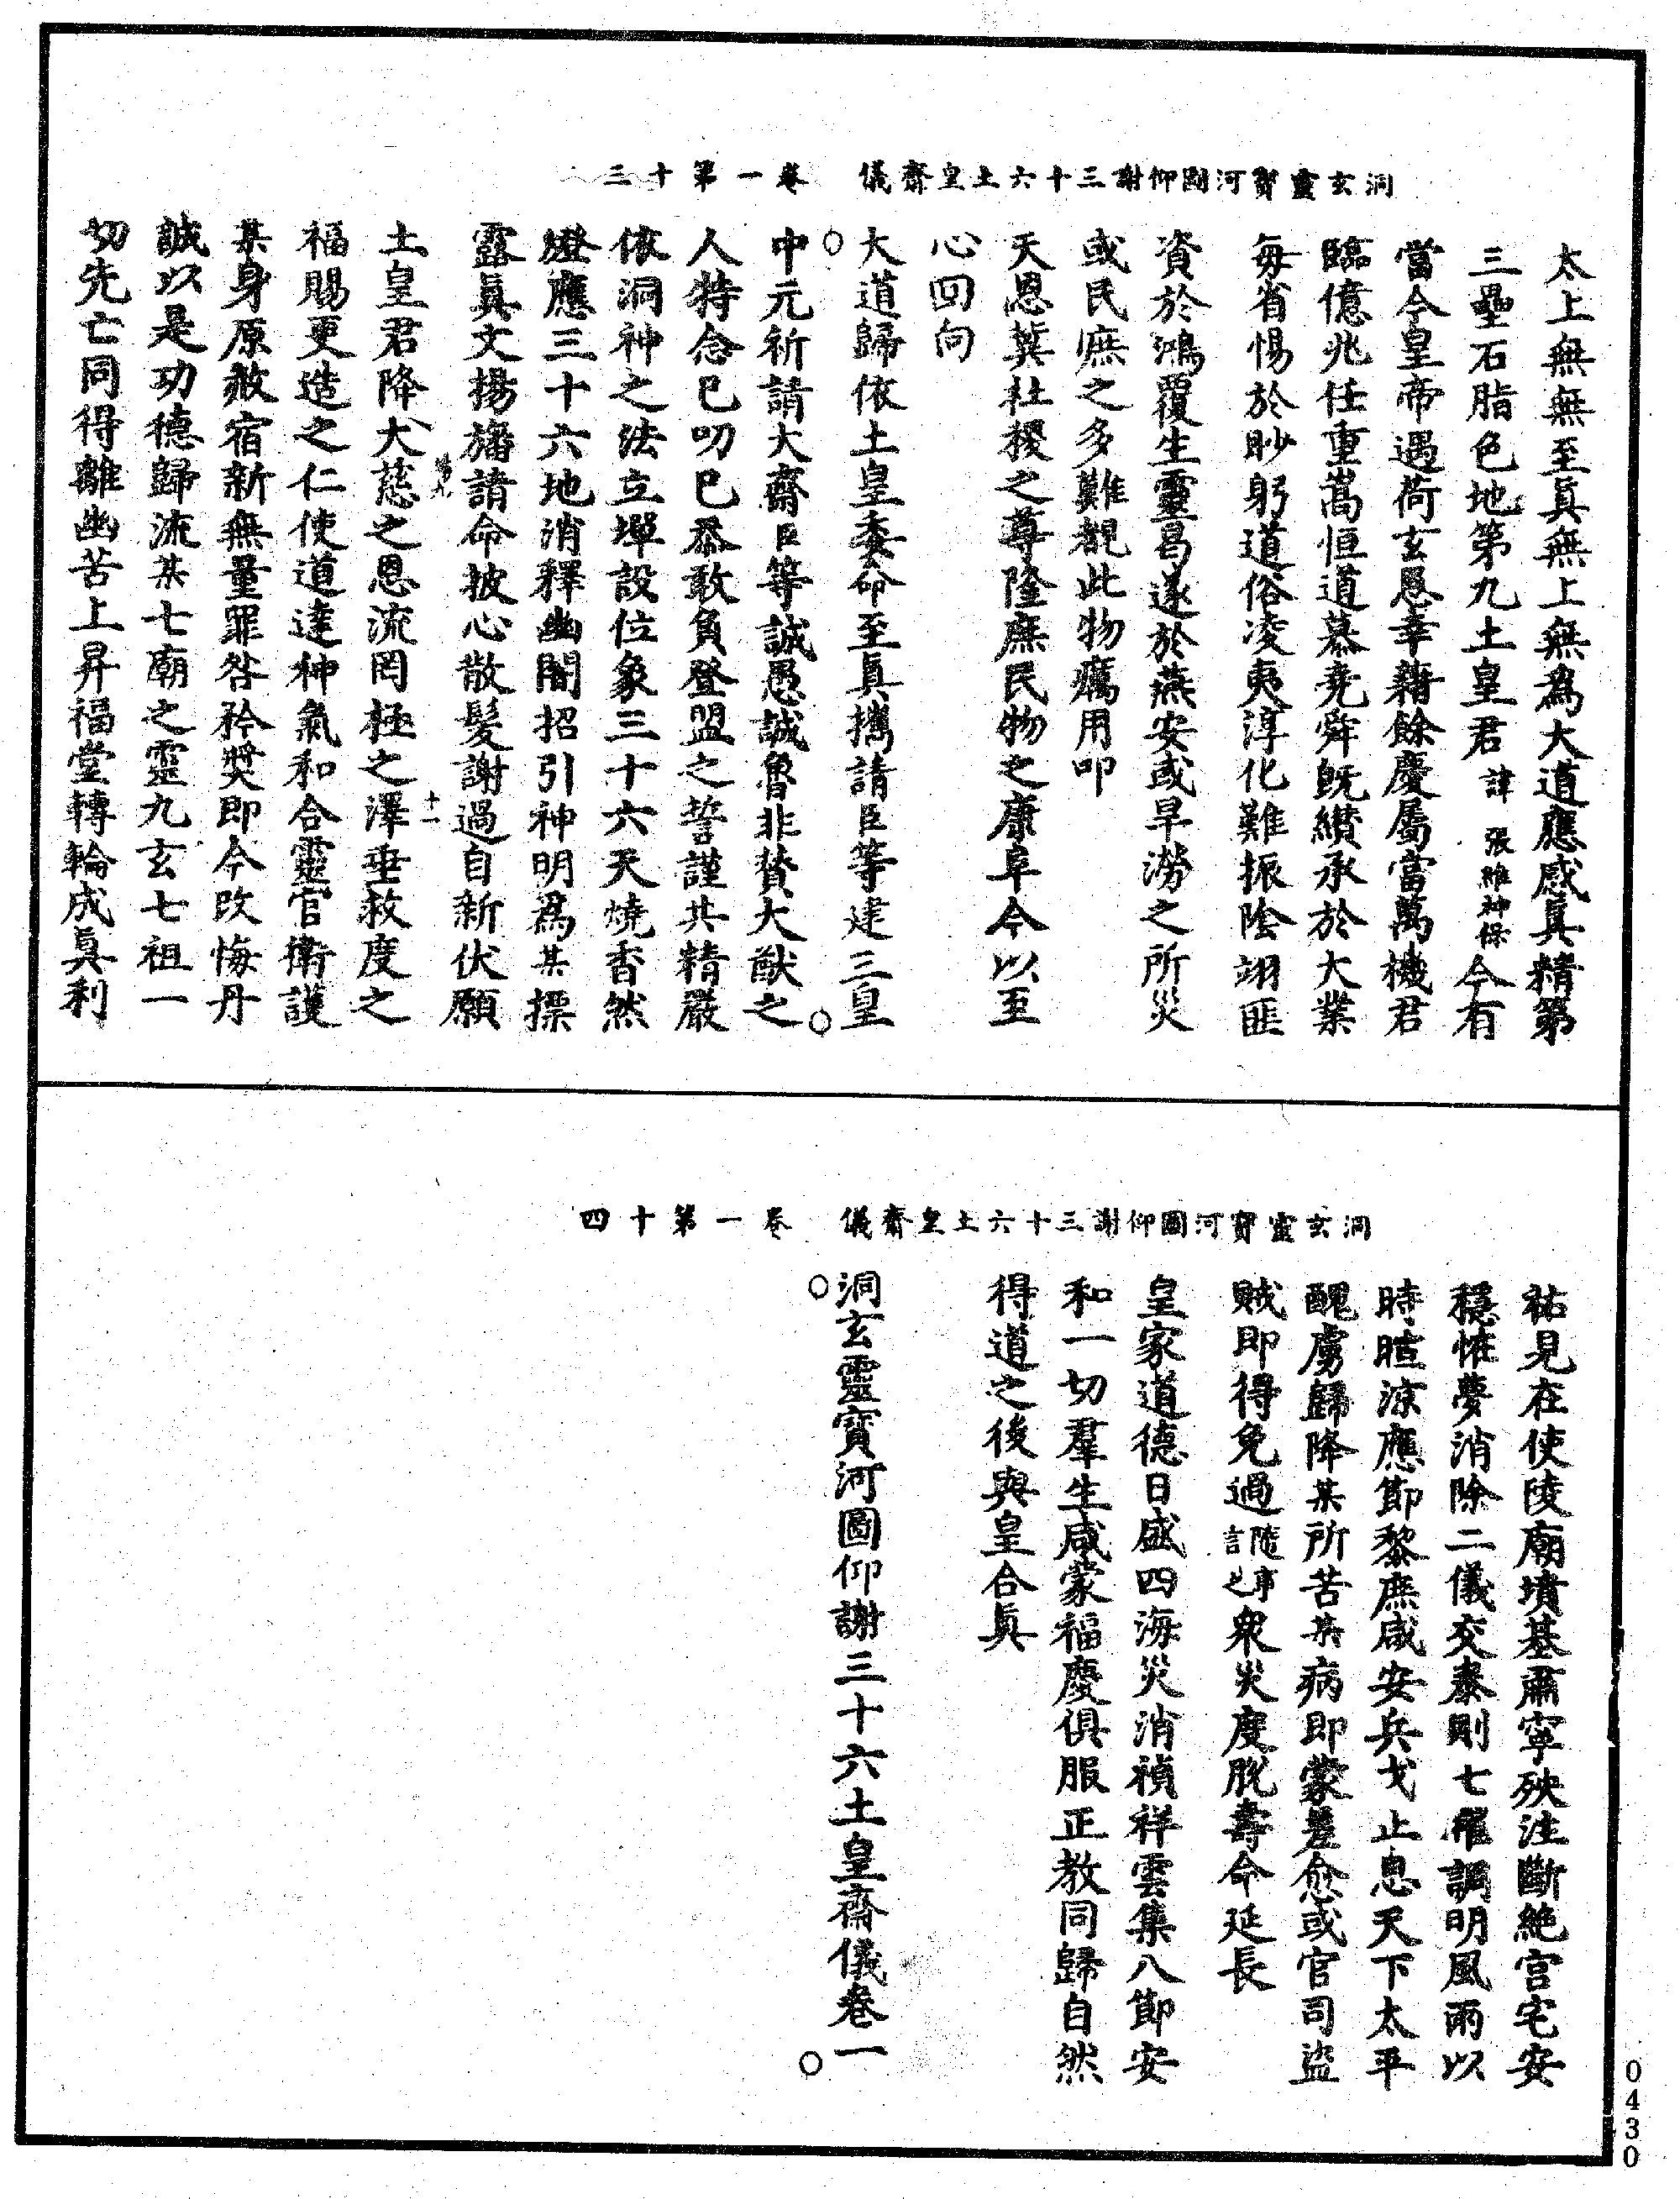 洞玄靈寶河圖仰謝三十六土皇齋儀　卷一第十三
太上無無至真無上無為大道應感真精第
三壘石脂色地第九土皇君諱張維神保今有
當今皇帝遇荷玄恩幸藉餘慶屬當萬機君
臨億兆任重嵩恒道慕堯舜既纘承於大業
每省惕於眇躬道俗凌夷淳化難振陰翊匪
資於鴻覆生靈昌遂於燕安或旱澇之所災
或民庶之多難覩此物癘用叩
天恩冀社稷之尊隆庶民物之康阜今以至
心回向
大道歸依土皇委命至真攜請臣等建三皇
中元祈請大齋臣等誠愚誠魯非賛大猷之
人特念已叨已忝敢負登盟之誓謹共精嚴
依洞神之法立墠設位象三十六天燒香然
燈應三十六地消釋幽闇招引神明為某摽
露真文揚旛請命披心散髮謝過自新伏願
土皇君降大慈之恩流罔極之澤垂救度之
十一
福賜更造之仁使道達神氣和合靈官衛護
某身原赦宿新無量罪咎矜獎即今改悔丹
誠以是功德歸流某七廟之靈九玄七祖一
切先亡同得離幽苦上昇福堂轉輪成真利
洞玄靈寶河圖仰謝三十六土皇齋儀　卷一第十四
祐見在使陵廟墳基肅寧殃注斷絕宮宅安
穩恠夢消除二儀交泰則七曜調明風雨以
時暄涼應節黎庶咸安兵戈止息天下太平
醜虜歸降某所苦某病即蒙差愈或官司盜
賊即得免過隨事言之眾災度脫壽命延長
皇家道德日盛四海災消禎祥雲集八節安
和一切羣生咸蒙福慶俱服正教同歸自然
得道之後與皇合真
洞玄靈寶河圖仰謝三十六土皇齋儀卷一
0430